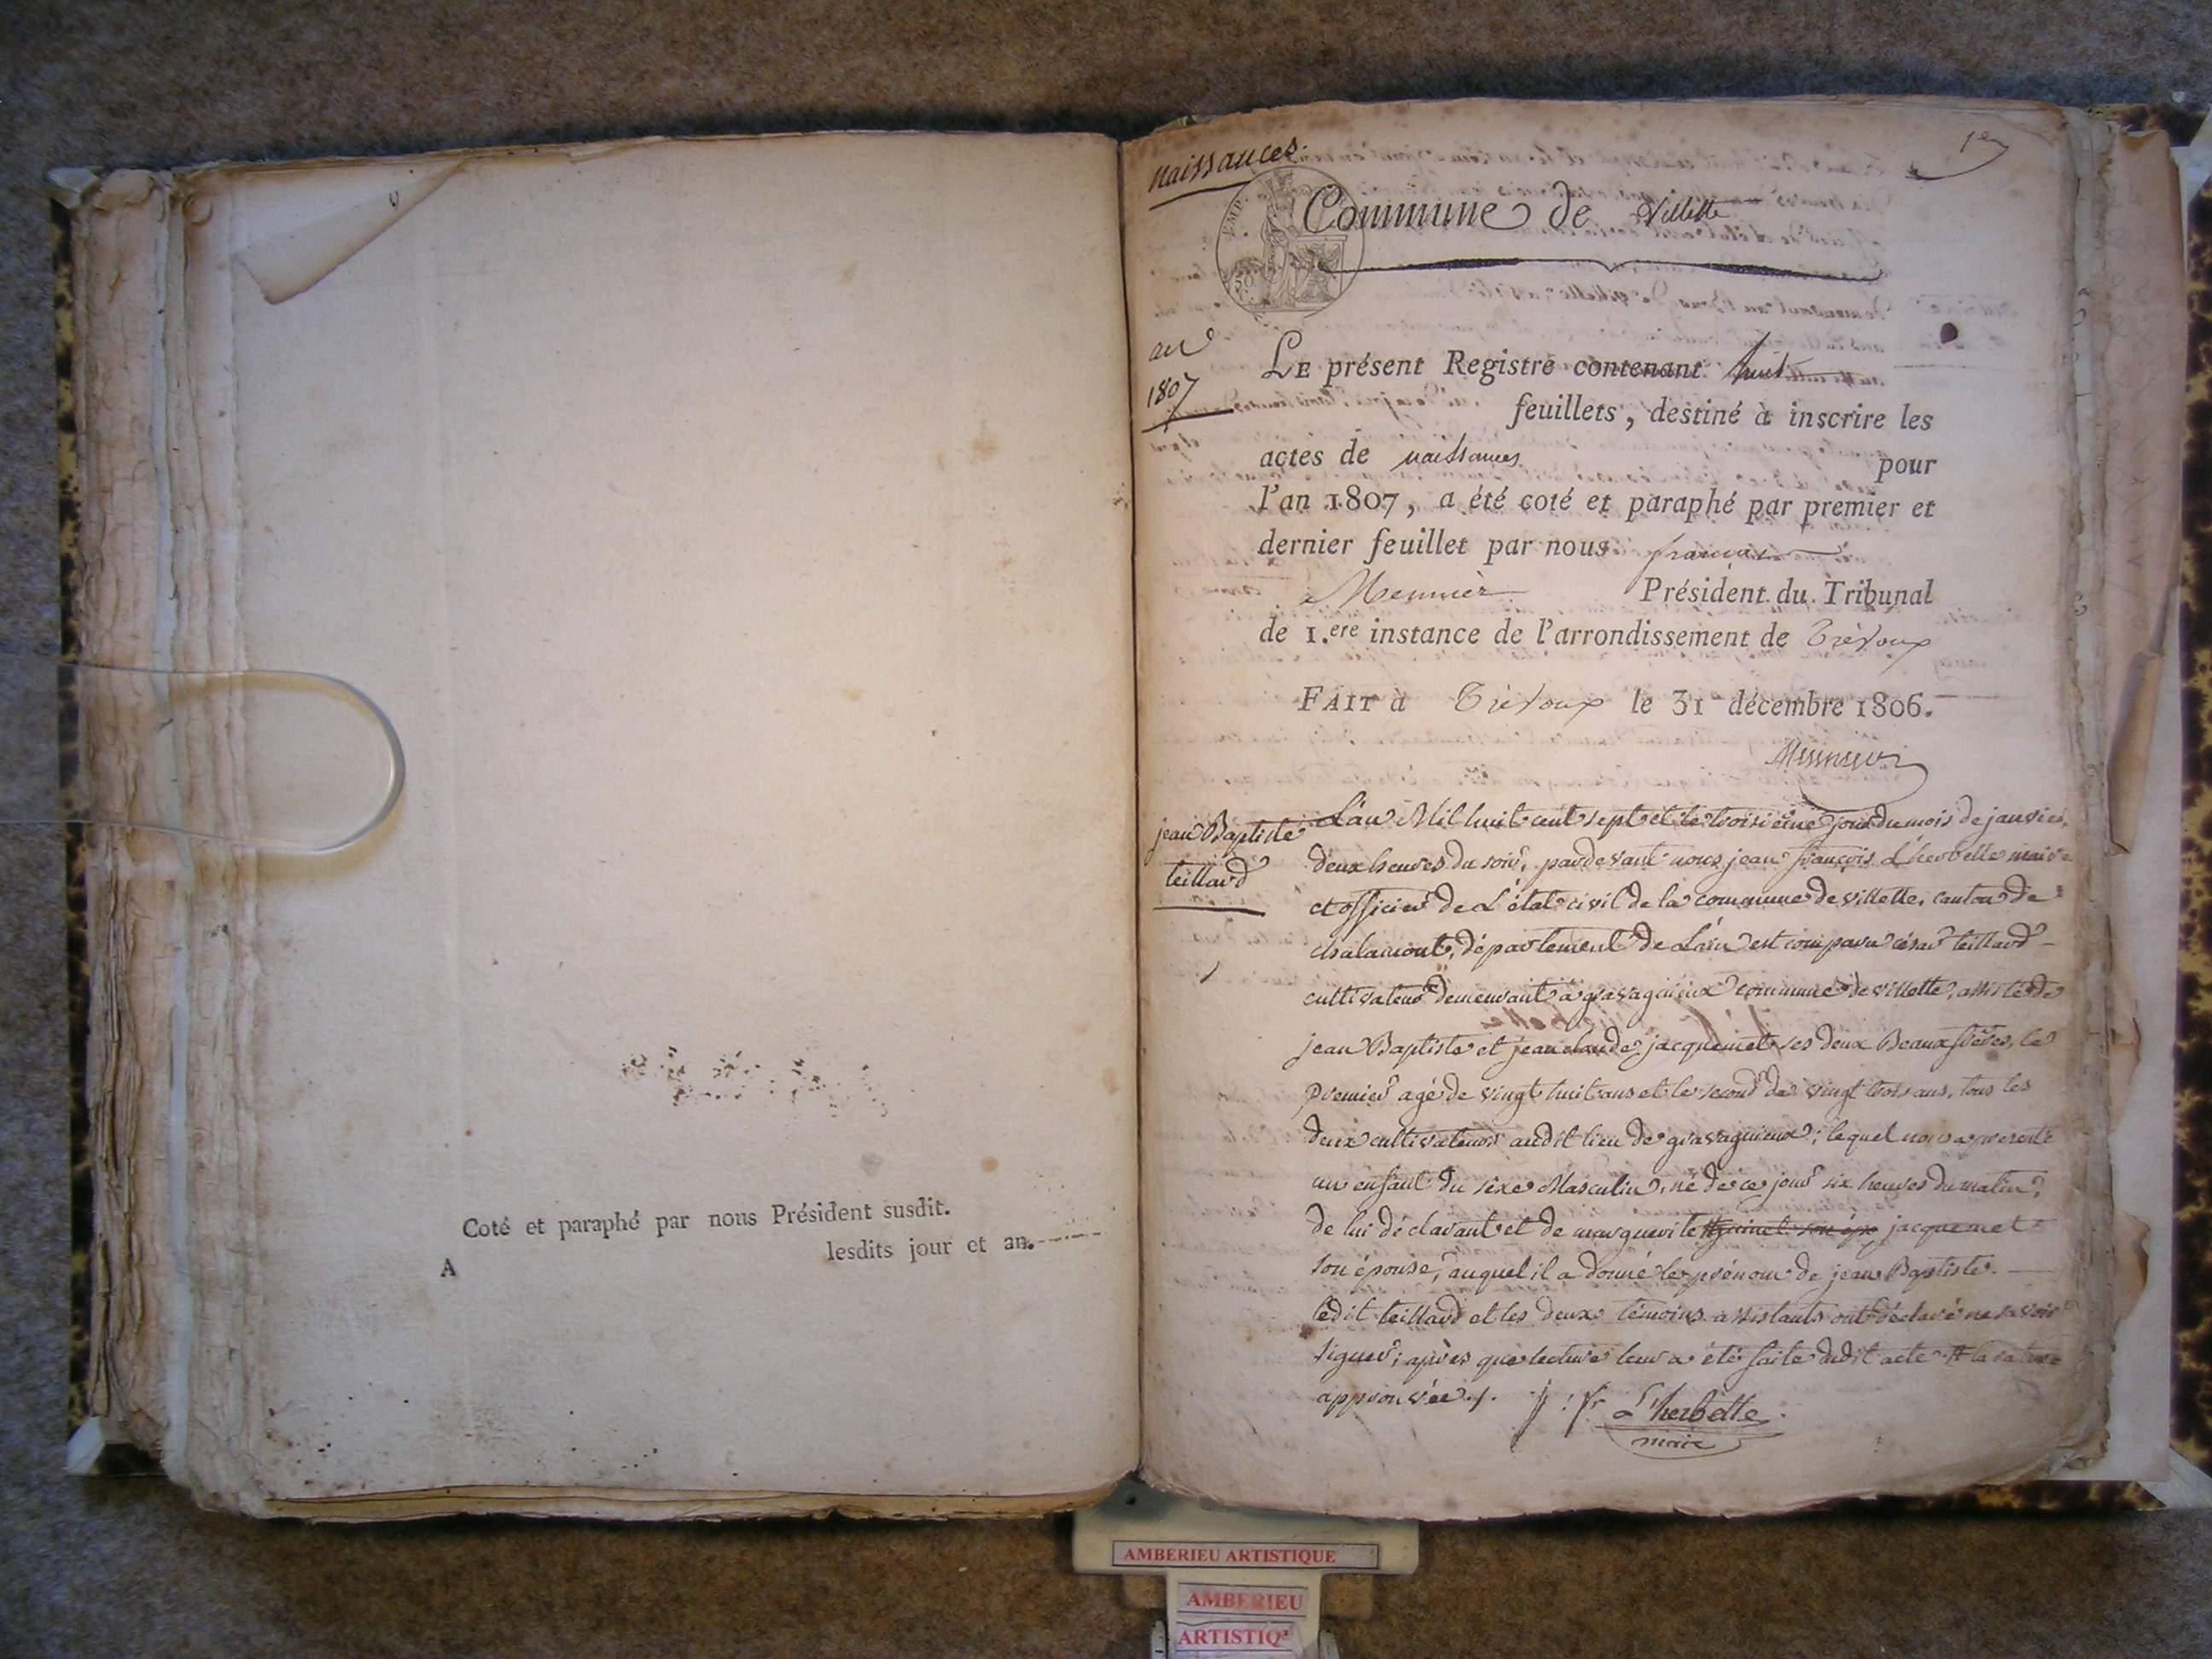 Coté et paraphé par nous Président susdit.
A lesdits jour et an.
naissances.
1er
Commune de Villette
EMP.
an
1807
LE présent Registre contenant huit
feuillets, destiné à inscrire les
actes de naissances pour
l'an 1807, a été coté et paraphé par premier et
dernier feuillet par nous françois
Mennier Président du Tribunal
de 1.ere instance de l'arrondissement de Trévoux
FAIT à Trévoux le 31 décembre 1806.
Mennier
jean Baptiste
teillard
1
L'an Mil huit cent sept et le troisième jour du mois de janvier,
deux heures du soir, pardevant nous jean françois L'herbette maire
et officier de L'état civil de la commune de villette, canton de
chalamont, département de L'ain est comparu césar teillard
cultivateur demeurant à gravagnieux commune de villette, assisté de
jean Baptiste et jean claude jacquemet ses deux Beaux frères, le
premier agé de vingt huit ans et le second de vingt trois ans, tous les
deux cultivateurs audit lieu de gravagnieux; lequel nous a presenté
un enfant du sexe Masculin, né de ce jour six heures du matin,
de lui déclarant et de marguerite jacquemet
son épouse, auquel il a donné le prénom de jean Baptiste.
ledit teillard et les deux témoins assistants ont déclaré ne savoir
signer; après que lecture leur a été faite dudit acte # la rature
approuvée ./. j : fr L'herbette
maire
AMBERIEU ARTISTIQUE
AMBERIEU
ARTISTIQ